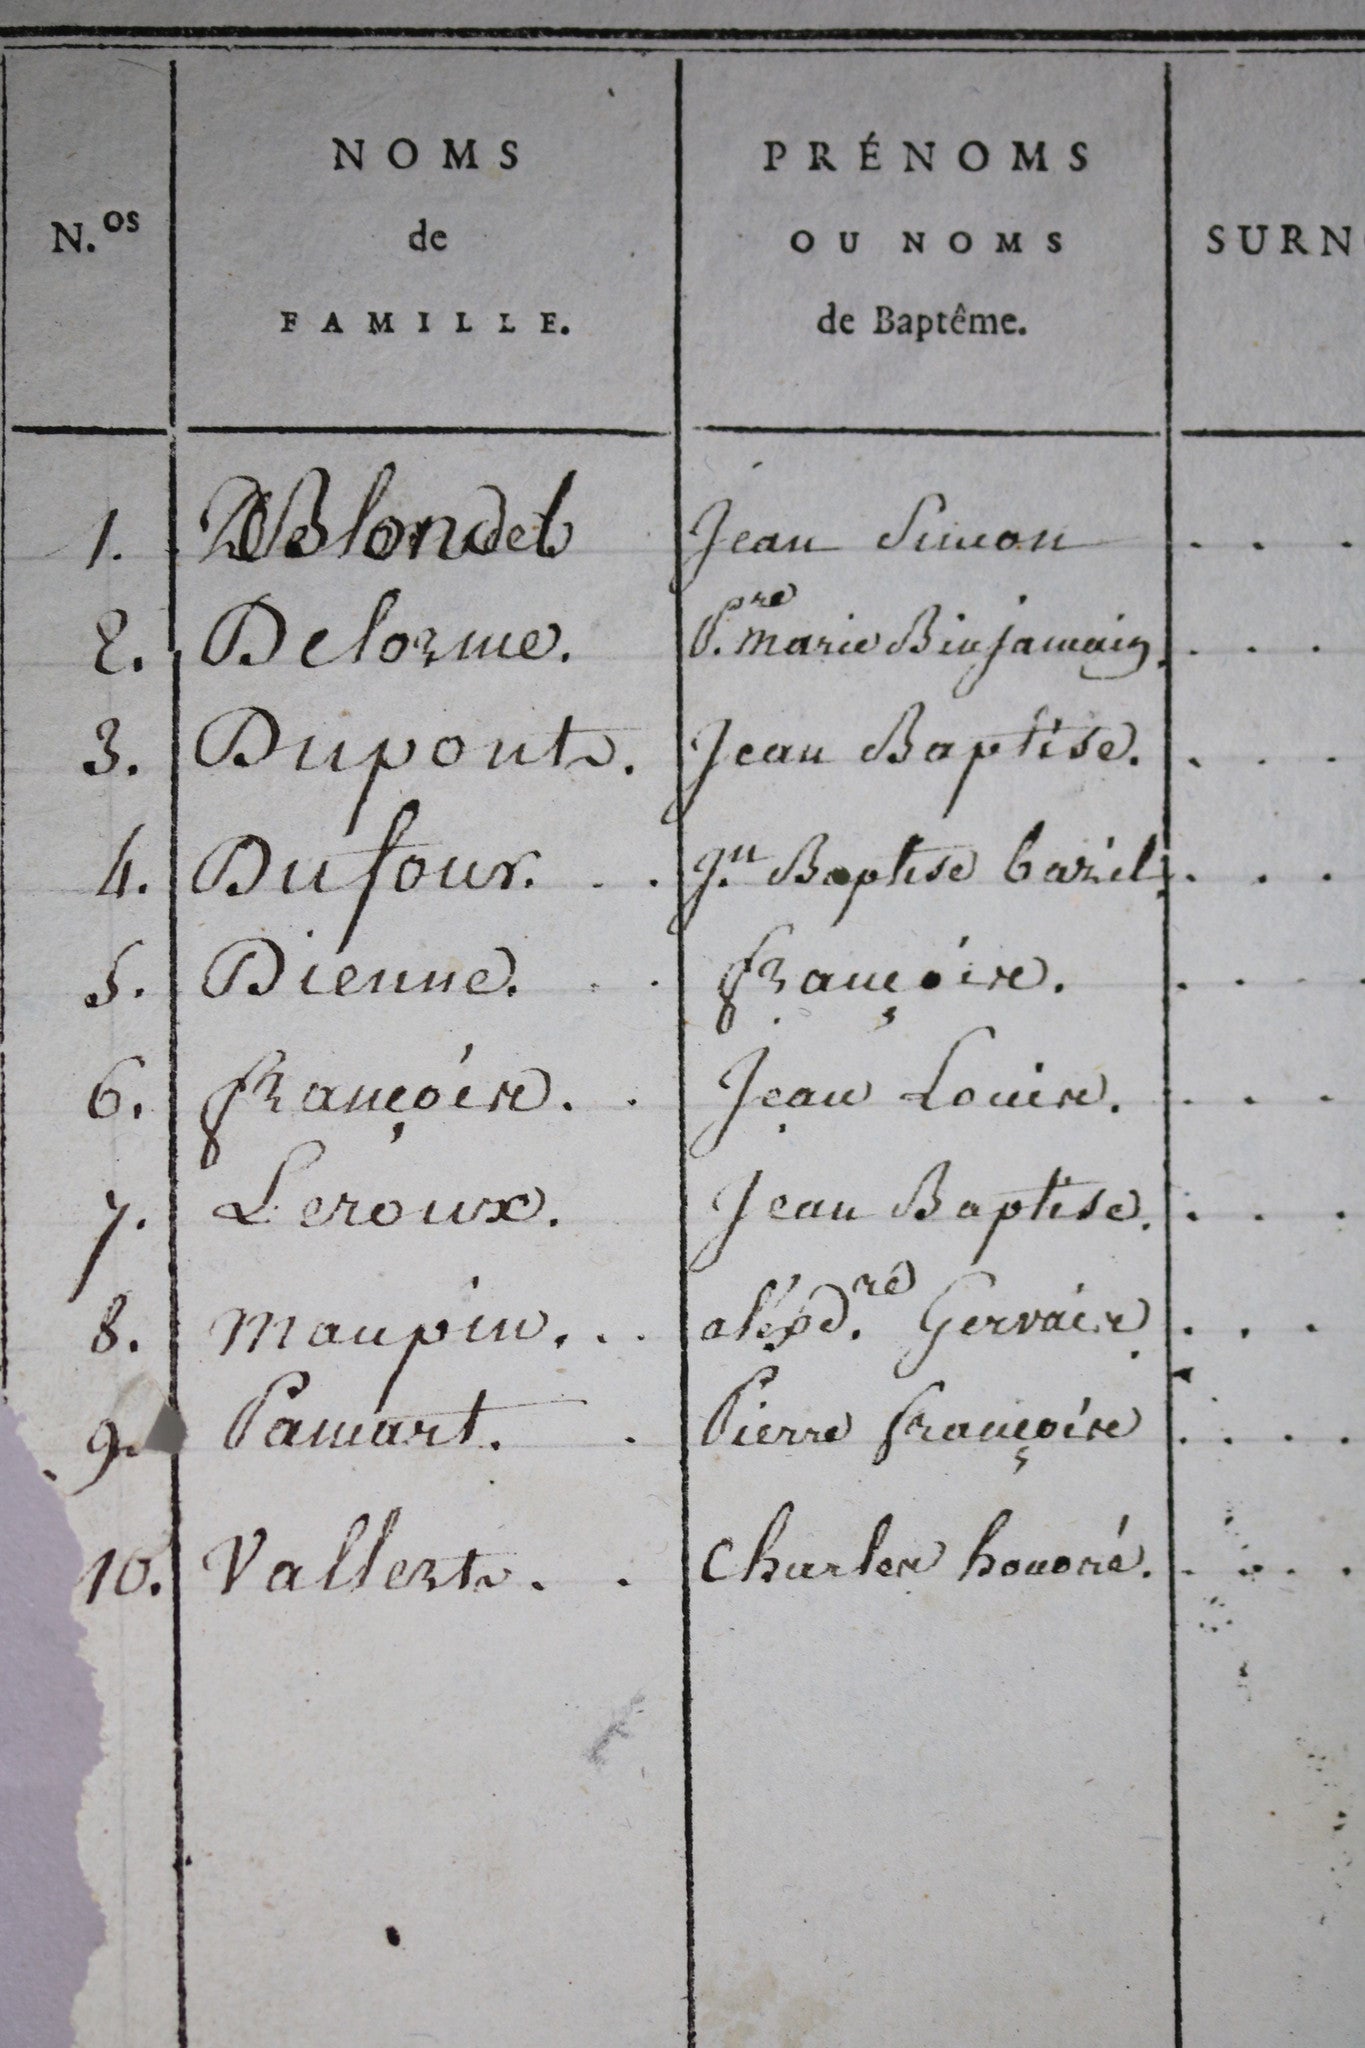 N.os
NOMS
de
FAMILLE.
PRÉNOMS
OU NOMS
de Baptême.
SURN
1. Blondel Jean Simon . . .
2. Delorme. P.re marie Binjamain. . . .
3. Dupont. Jean Baptise. . . .
4. Dufour. . . J.n Baptise bazil. . . .
5. Dienne. . . françois. . . . .
6. françois. . Jean Louis. . . .
7. Leroux. Jean Baptise. . . .
8. Maupin. . . aléxd.re Gervais . . .
9. Pamart. . Pierre françois . . . .
10. Vallert. . Charles honoré. . . . .